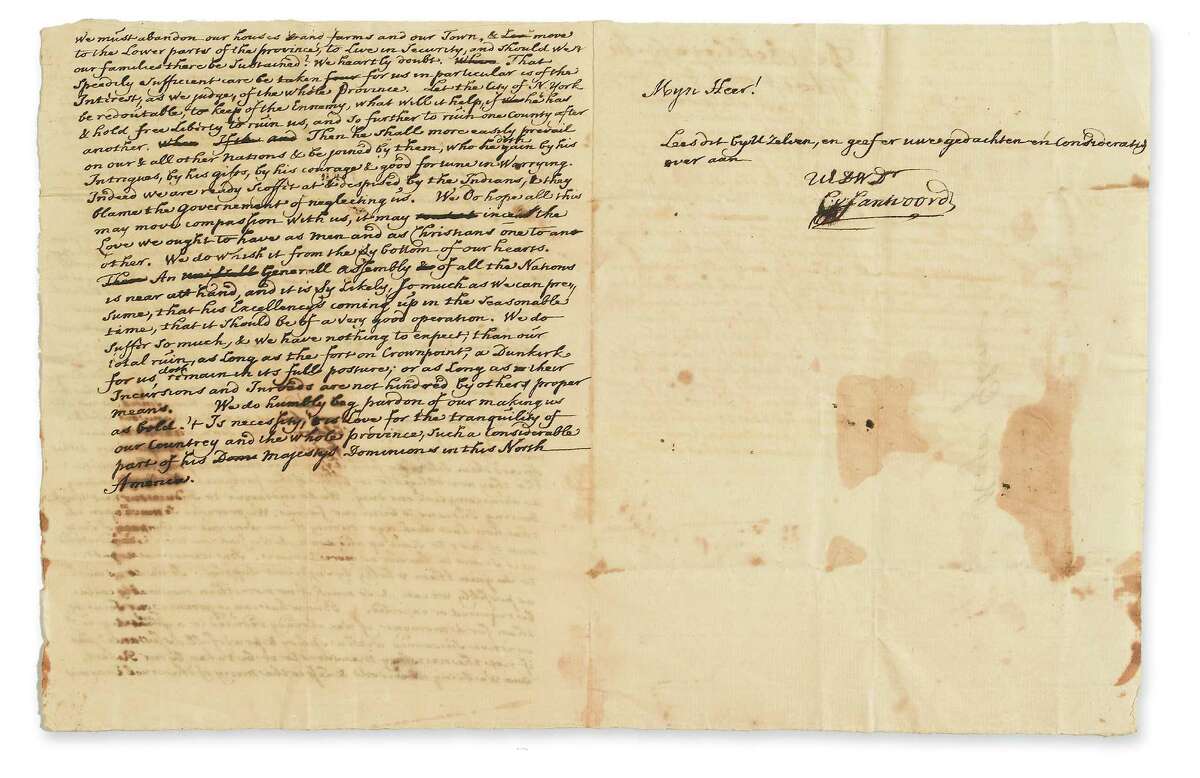 We must abandon our houses and farms and our Town, & move
to the Lower parts of the province, to Live in Security, and should we &
our families there be Sustained? We heartly doubt. When That
Speedily Sufficient care be taken four for us in particular is of the
Interest, as we judge, of the whole Province. Let the City of N. York
be redoutable, to keep of the Ennemy, what will it help, if he has
& hold, free Liberty to ruin us, and so further to ruin one County after
another. when If the and Then he shall more easily prevail
on our & all other Nations & be joined by them, who he doth gain by his
Intrigues, by his gifts, by his courage & good fortune in Warrying.
Indeed we are ready Scofft at & despised by the Indians, & they
blame the Governement of neglecting us. We Do hope all this
may move compassion With us, it may incest the
Love we ought to have as Men and as Christians one to an
other. We do whish it from the by bottom of our hearts.
An Generall Assembly of all the Nations
is near att hand, and it is by Likely, so much as We can pre,
sume, that his Excellencys coming up in the Seasonable
time, that it should be of a very good operation. We do
suffer so much, & we have nothing to enpect, than our
total ruin, as Long as the fort on Crownpoint, a Dunkirk
for us, doth remain in its full posture, or as Long as their
Incursions and Inroads are not hindred by others proper
means. We do humbly beg pardon of our making us
as bold. 't Is necessity, Love for the tranquility of
our Countrey and the whole province, such a Considerable
part of his Dom Majestys Dominions in this North
America.
Myn Heer!
Lees dit by U Zelven, en geef er uwe gedachten en Condideratis
over aan
UEDWDr